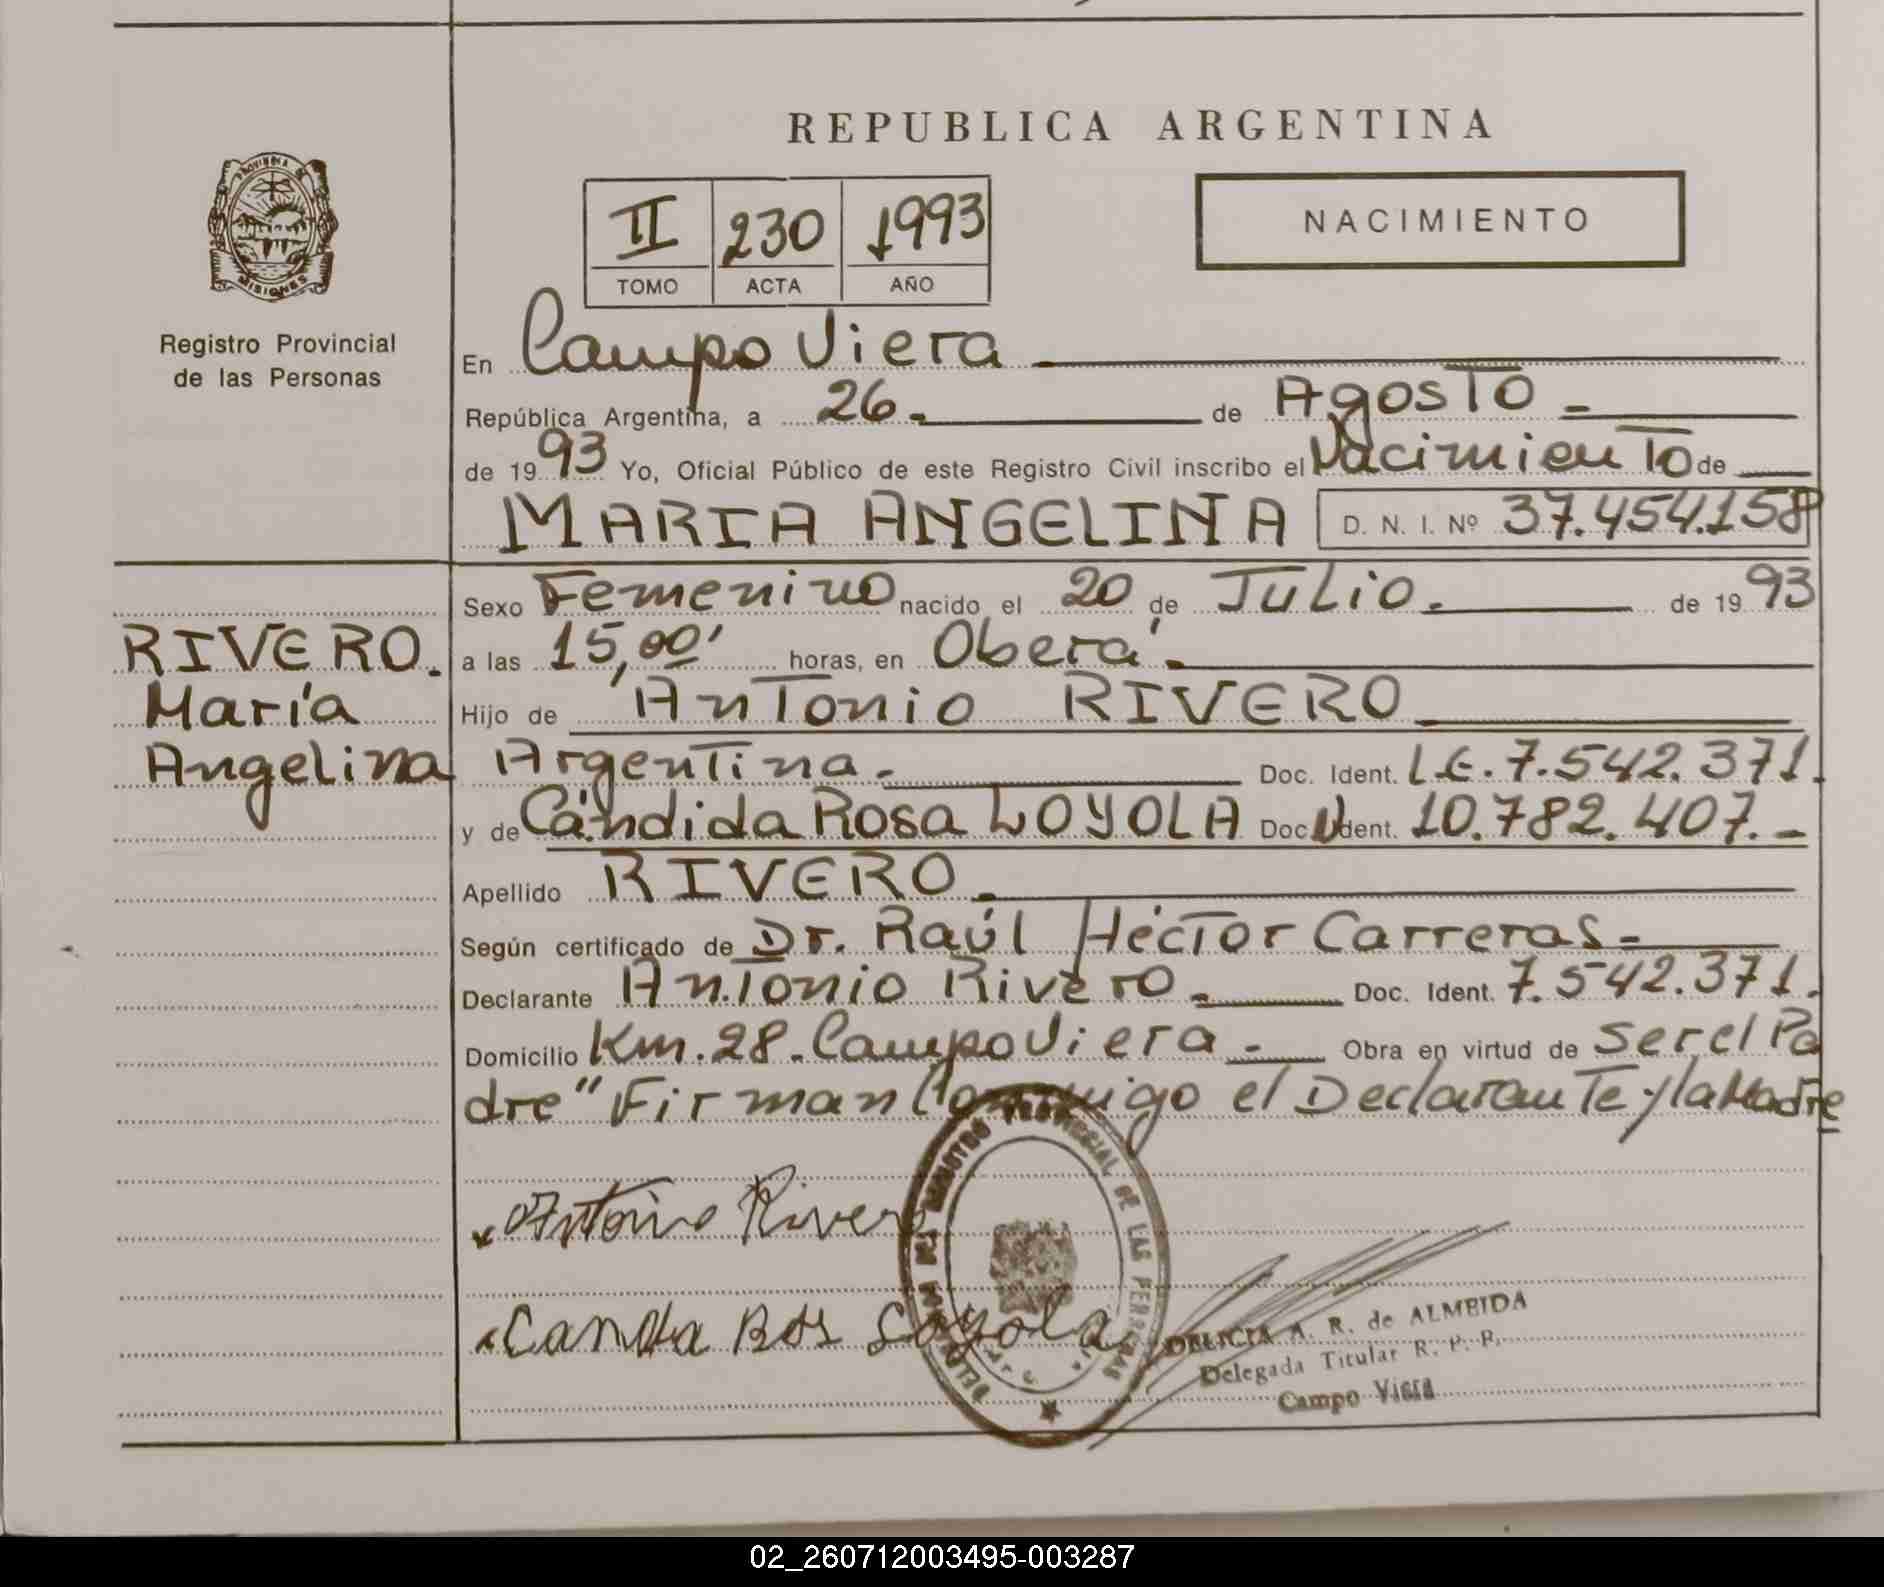 REPUBLICA ARGENTINA
PROVINCIA DE
MISIONES
Registro Provincial
de las Personas
II 230 1993
TOMO ACTA AÑO
NACIMIENTO
En Campo Viera
República Argentina, a 26 de Agosto
de 1993 Yo, Oficial Público de este Registro Civil inscribo el Nacimiento de
MARIA ANGELINA D. N. I. Nº 37.454.158
Sexo Femenino nacido el 20 de Julio. de 1993
RIVERO.
María
Angelina
a las 15,00' horas, en Oberá
Hijo de Antonio RIVERO
Argentina. Doc. Ident. L.E. 7.542.371.
y de Cándida Rosa LOYOLA Doc. Ident. 10.782.407.-
Apellido RIVERO.
Según certificado de Dr. Raúl Héctor Carreras-
Declarante Antonio Rivero. Doc. Ident. 7.542.371.
Domicilio Km. 28. Campo Viera - Obra en virtud de ser el Pa
dre" Firman Conmigo el Declarante y la Madre
Antonio Rivero
Loyola
REGISTRO PROVINCIAL DE LAS PERSONAS
DELICIA A. R. de ALMEIDA
Delegada Titular R. P. P.
Campo Viera
02_260712003495-003287